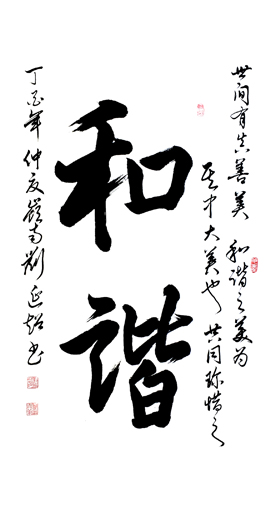 世间有真善美 和谐之美为
其中大美也 共同珍惜之
和谐
丁酉年仲夏嶺南刘延书